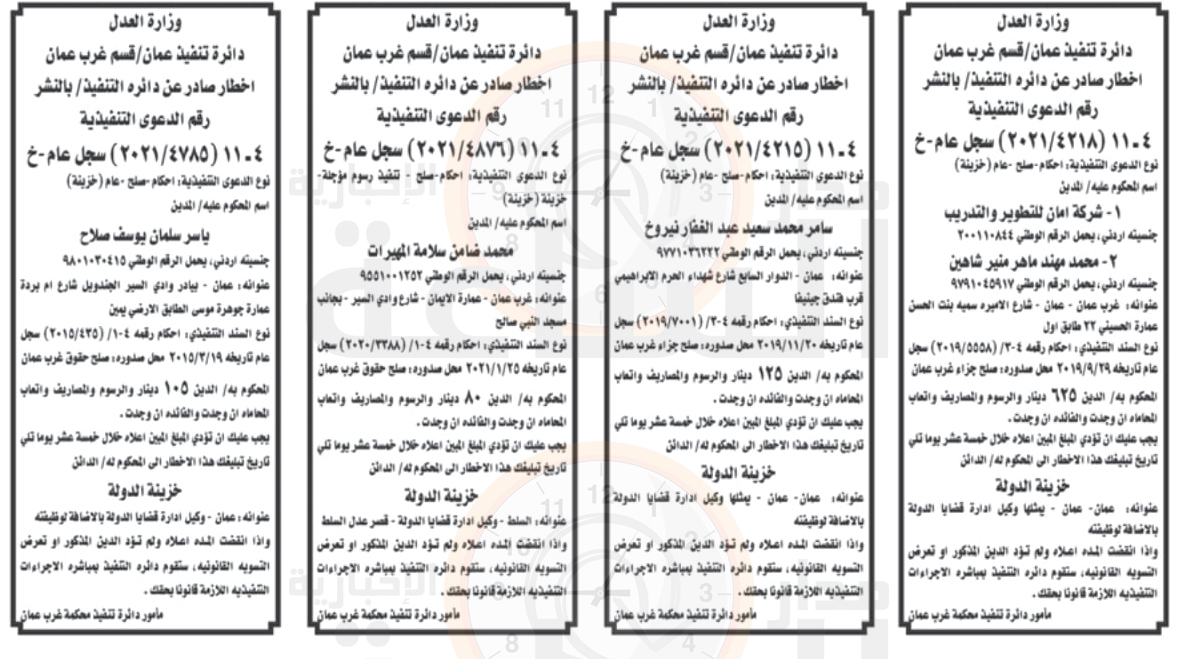 وزارة العدل
دائرة تنفيذ عمان/قسم غرب عمان
اخطار صادر عن دائره التنفيذ/ بالنشر
رقم الدعوى التنفيذية
٤ـ١١ (٢٠٢١/٤٢١٨) سجل عام -خ
نوع الدعوى التنفيذية: احكام -صلح -عام (خزينة)
اسم المحكوم عليه/ المدين
١- شركة امان للتطوير والتدريب
جنسيته اردني، يحمل الرقم الوطني ٢٠٠١١٠٨٤٤
٢- محمد مهند ماهر منير شاهين
جنسيته اردني، يحمل الرقم الوطني ٩٧٩١٠٤٥٩١٧
عنوانه: غرب عمان - عمان - شارع الاميره سميه بنت الحسن
عمارة الحسيني ٢٢ طابق اول
نوع السند التنفيذي: احكام رقمه ٤-٣/ (٢٠١٩/٥٥٥٨) سجل
عام تاريخه ٢٠١٩/٩/٢٩ محل صدوره: صلح جزاء غرب عمان
المحكوم به/ الدين ٦٢٥ دينار والرسوم والمصاريف واتعاب
المحاماه ان وجدت والفائده ان وجدت .
يجب عليك ان تؤدي المبلغ المبين اعلاه خلال خمسة عشر يوما تلي
تاريخ تبليغك هذا الاخطار الى المحكوم له/ الدائن
خزينة الدولة
عنوانه: عمان- عمان - يمثلها وكيل ادارة قضايا الدولة
بالاضافة لوظيفته
واذا انقضت المده اعلاه ولم تؤد الدين المذكور او تعرض
التسويه القانونيه، ستقوم دائره التنفيذ بمباشره الاجراءات
التنفيذيه اللازمة قانونا بحقك .
مأمور دائرة تنفيذ محكمة غرب عمان
وزارة العدل
دائرة تنفيذ عمان/قسم غرب عمان
اخطار صادر عن دائره التنفيذ/ بالنشر
رقم الدعوى التنفيذية
٤ـ١١ (٢٠٢١/٤٢١٥) سجل عام -خ
نوع الدعوى التنفيذية: احكام -صلح -عام (خزينة)
اسم المحكوم عليه/ المدين
سامر محمد سعيد عبد الغفار نيروخ
جنسيته اردني، يحمل الرقم الوطني ٩٧٧١٠٣٦٢٢٢
عنوانه: عمان - الدوار السابع شارع شهداء الحرم الابراهيمي
قرب فندق جينيفا
نوع السند التنفيذي: احكام رقمه ٤-٣/ (٢٠١٩/٧٠٠١) سجل
عام تاريخه ٢٠١٩/١١/٢٠ محل صدوره: صلح جزاء غرب عمان
المحكوم به/ الدين ١٢٥ دينار والرسوم والمصاريف واتعاب
المحاماه ان وجدت والفائده ان وجدت .
يجب عليك ان تؤدي المبلغ المبين اعلاه خلال خمسة عشر يوما تلي
تاريخ تبليغك هذا الاخطار الى المحكوم له/ الدائن
خزينة الدولة
عنوانه: عمان- عمان - يمثلها وكيل ادارة قضايا الدولة
بالاضافة لوظيفته
واذا انقضت المده اعلاه ولم تؤد الدين المذكور او تعرض
التسويه القانونيه، ستقوم دائره التنفيذ بمباشره الاجراءات
التنفيذيه اللازمة قانونا بحقك .
مأمور دائرة تنفيذ محكمة غرب عمان
وزارة العدل
دائرة تنفيذ عمان/قسم غرب عمان
اخطار صادر عن دائره التنفيذ/ بالنشر
رقم الدعوى التنفيذية
٤ـ١١ (٢٠٢١/٤٨٧٦) سجل عام -خ
نوع الدعوى التنفيذية: احكام-صلح - تنفيذ رسوم مؤجلة-
خزينة (خزينة)
اسم المحكوم عليه/ المدين
محمد ضامن سلامة المهيرات
جنسيته اردني، يحمل الرقم الوطني ٩٥٥١٠٠١٢٥٢
عنوانه: غرب عمان - عمارة الايمان - شارع وادي السير - بجانب
مسجد النبي صالح
نوع السند التنفيذي: احكام رقمه ٤-١/ (٢٠٢٠/٣٣٨٨) سجل
عام تاريخه ٢٠٢١/١/٢٥ محل صدوره: صلح حقوق غرب عمان
المحكوم به/ الدين ٨٠ دينار والرسوم والمصاريف واتعاب
المحاماه ان وجدت والفائده ان وجدت .
يجب عليك ان تؤدي المبلغ المبين اعلاه خلال خمسة عشر يوما تلي
تاريخ تبليغك هذا الاخطار الى المحكوم له/ الدائن
خزينة الدولة
عنوانه: السلط - وكيل ادارة قضايا الدولة - قصر عدل السلط
واذا انقضت المده اعلاه ولم تؤد الدين المذكور او تعرض
التسويه القانونيه، ستقوم دائره التنفيذ بمباشره الاجراءات
التنفيذيه اللازمة قانونا بحقك .
مأمور دائرة تنفيذ محكمة غرب عمان
وزارة العدل
دائرة تنفيذ عمان/قسم غرب عمان
اخطار صادر عن دائره التنفيذ/ بالنشر
رقم الدعوى التنفيذية
٤ـ١١ (٢٠٢١/٤٧٨٥) سجل عام -خ
نوع الدعوى التنفيذية: احكام-صلح -عام (خزينة)
اسم المحكوم عليه/ المدين
ياسر سلمان يوسف صلاح
جنسيته اردني، يحمل الرقم الوطني ٩٨٠١٠٣٠٤١٥
عنوانه: عمان - بيادر وادي السير الجندويل شارع ام بردة
عمارة جوهرة موسى الطابق الارضي يمين
نوع السند التنفيذي: احكام رقمه ٤-١/ (٢٠١٥/٤٣٥) سجل
عام تاريخه ٢٠١٥/٣/١٩ محل صدوره: صلح حقوق غرب عمان
المحكوم به/ الدين ١٠٥ دينار والرسوم والمصاريف واتعاب
المحاماه ان وجدت والفائده ان وجدت .
يجب عليك ان تؤدي المبلغ المبين اعلاه خلال خمسة عشر يوما تلي
تاريخ تبليغك هذا الاخطار الى المحكوم له/ الدائن
خزينة الدولة
عنوانه: عمان - وكيل ادارة قضايا الدولة بالاضافة لوظيفته
واذا انقضت المده اعلاه ولم تؤد الدين المذكور او تعرض
التسويه القانونيه، ستقوم دائره التنفيذ بمباشره الاجراءات
التنفيذيه اللازمة قانونا بحقك .
مأمور دائرة تنفيذ محكمة غرب عمان
مدار
الساعة
الإخبارية